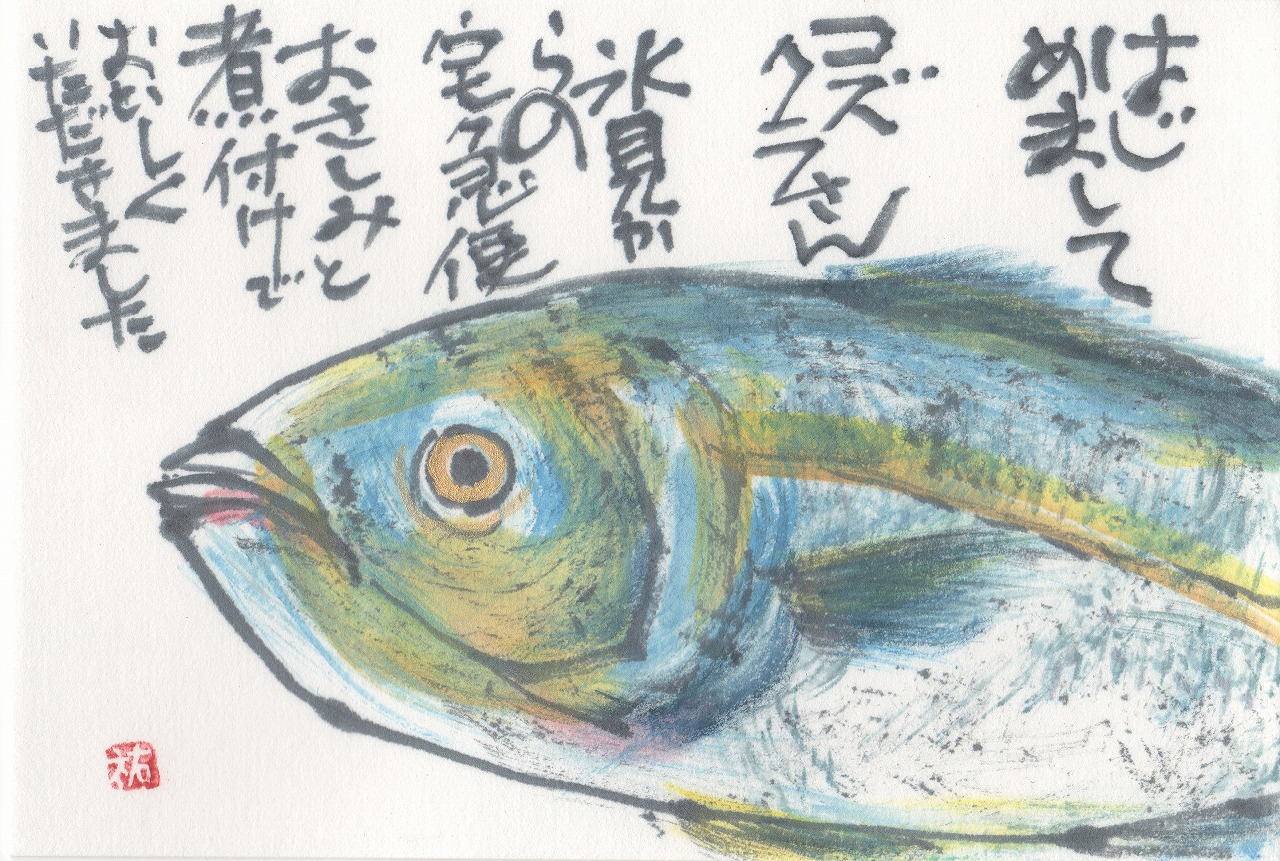 はじ
めまして
コズ
クラさん
氷見か
らの
宅急便
おさしみと
煮付けで
おいしく
いただきました
祐